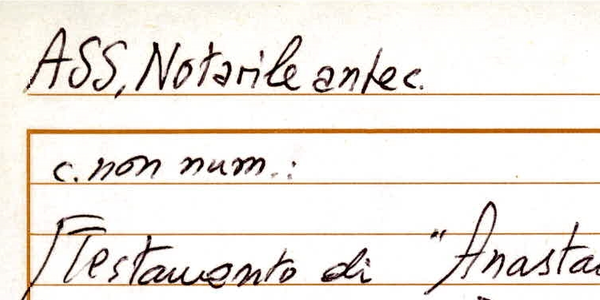 ASS, Notarile antec.
c. non num.:
Testamento di "Anasta